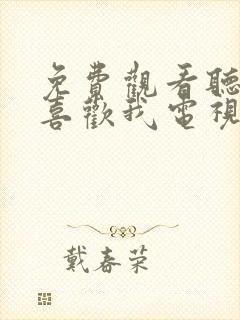 免費觀看聽
喜歡我電視
戴春荣